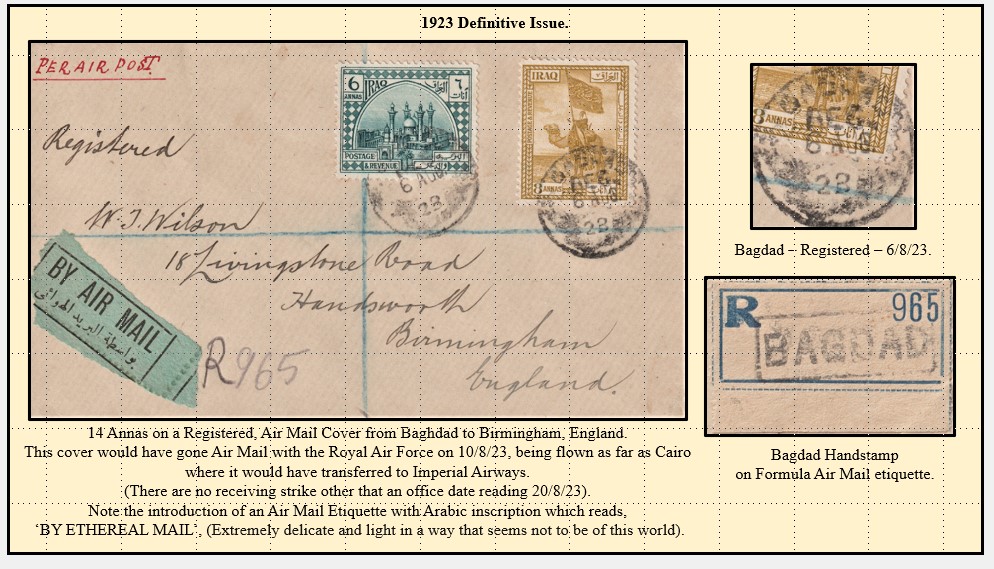 1923 Definitive Issue.
PER AIR POST.
6 ANNAS
IRAQ
العراق
٦ آنات
POSTAGE
& REVENUE
6 AUG
23
IRAQ
العراق
8 ANNAS
6 AUG
23
Registered
W. J. Wilson
18 Livingstone Road
Handsworth
Birmingham
England.
BY AIR MAIL
بواسطة البريد الهوائي
R 965
8 ANNAS
6 AUG
23
Bagdad – Registered – 6/8/23.
R 965
BAGDAD
Bagdad Handstamp
on Formula Air Mail etiquette.
14 Annas on a Registered, Air Mail Cover from Baghdad to Birmingham, England.
This cover would have gone Air Mail with the Royal Air Force on 10/8/23, being flown as far as Cairo
where it would have transferred to Imperial Airways.
(There are no receiving strike other that an office date reading 20/8/23).
Note the introduction of an Air Mail Etiquette with Arabic inscription which reads,
‘BY ETHEREAL MAIL’, (Extremely delicate and light in a way that seems not to be of this world).